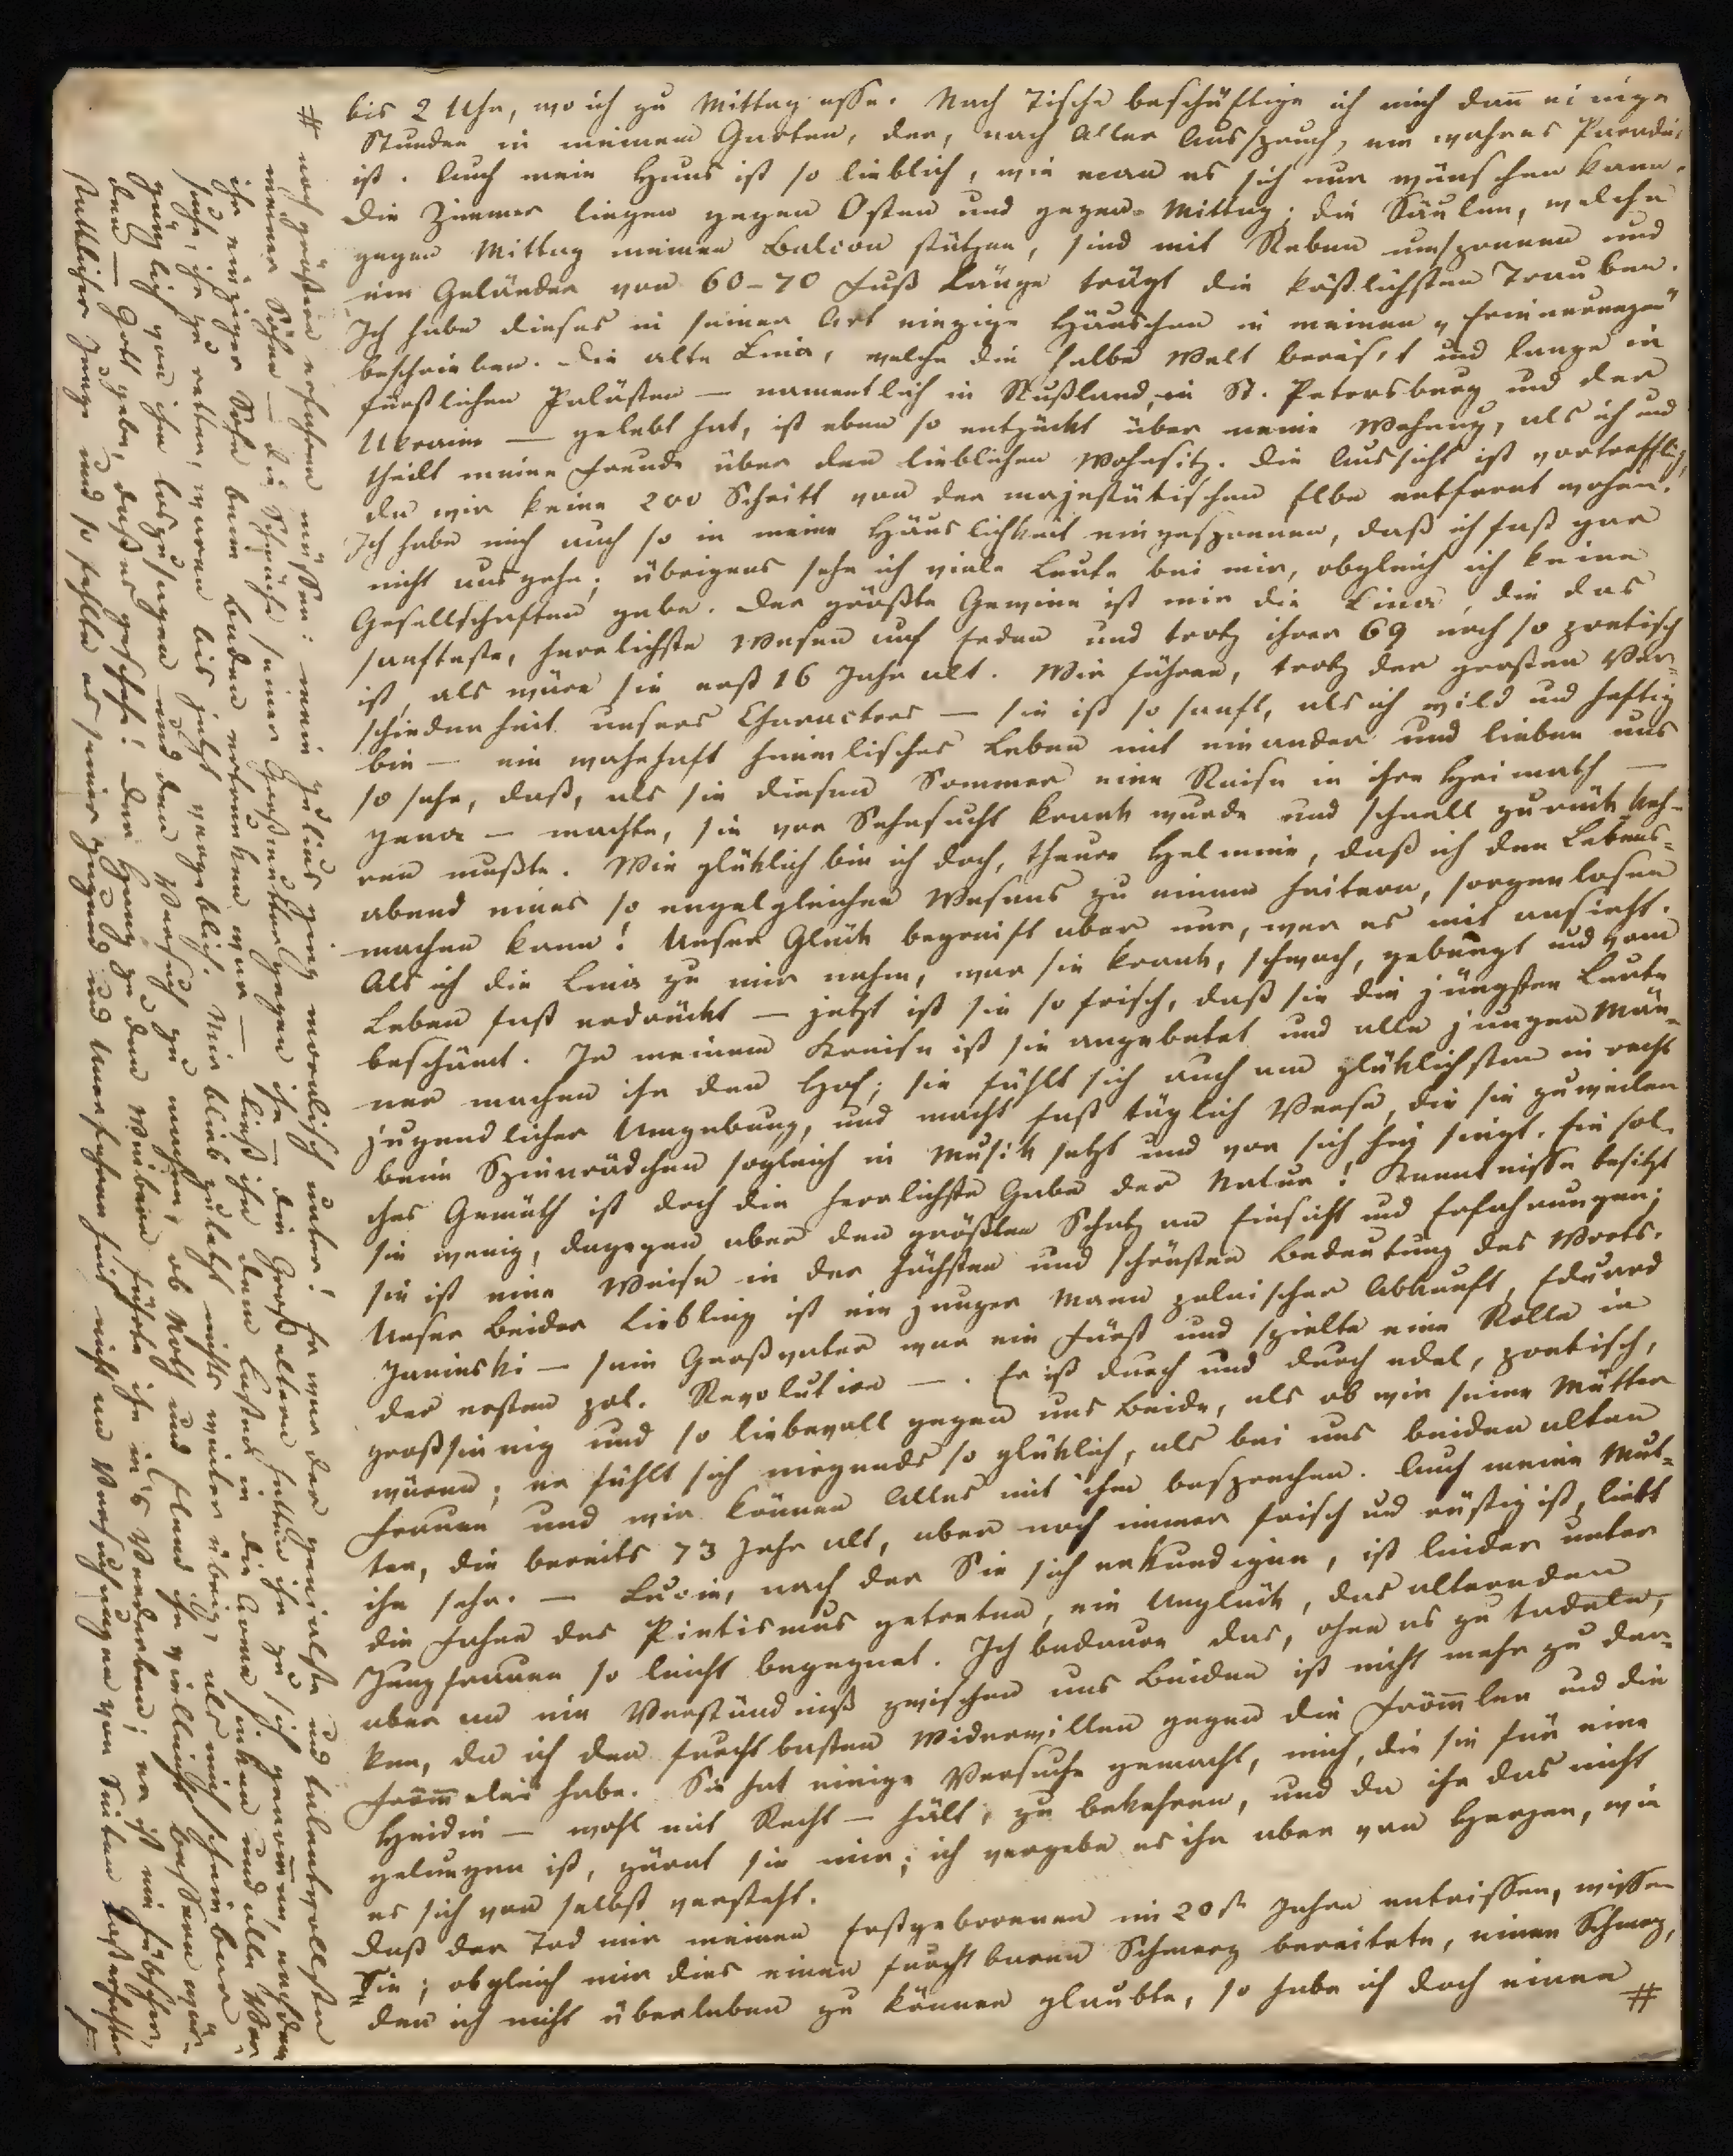 bis 2 Uhr, wo ich zu Mittag esse. Nach Tische beschäftige ich mich dañ einige
Stunden in meinem Garten, der, nach Aller Ausspruch, ein wahres Paradies
ist. Auch mein Haus ist so lieblich, wie man es sich nur wünschen kann.
Die Zimmer liegen gegen Osten und gegen Mittag; die Säulen, welche
gegen Mittag meinen Balcon stützen, sind mit Reben umsponnen und
ein Geländer von 60-70 Fuß Länge trägt die köstlichsten Trauben.
Ich habe dieses in seiner Art einzige Häuschen in meinen „Erinnerungen"
beschrieben. Die alte Lina, welche die halbe Welt bereis't und lange in
fürstlichen Palästen — namentlich in Rußland, in St. Petersburg und der
Ukraine — gelebt hat, ist eben so entzückt über meine Wohnung, als ich und
theilt meine Freude über den lieblichen Wohnsitz. Die Aussicht ist vortrefflich,
da wir keine 200 Schritt von der majestätischen Elbe entfernt wohnen.
Ich habe mich auch so in meine Häuslichkeit eingesponnen, daß ich fast gar
nicht ausgehe; übrigens sehe ich viele Leute bei mir, obgleich ich keine
Gesellschaften gebe. Der größte Gewinn ist mir die Lina, die das
sanfteste, herrlichste Wesen auf Erden und trotz ihrer 69 noch so poetisch
ist, als wäre sie erst 16 Jahr alt. Wir führen, trotz der grossen Ver-
schiedenheit unsers Characters — sie ist so sanft, als ich wild und heftig
bin — ein wahrhaft himmlisches Leben mit einander und lieben uns
so sehr, daß, als sie diesen Sommer eine Reise in ihre Heimath —
Jena — machte, sie vor Sehnsucht krank wurde und schnell zurück keh-
ren mußte. Wie glüklich bin ich doch, theure Helmine, daß ich den Lebens-
abend eines so engelgleichen Wesens zu einem heitern, sorgenlosen
machen kann! Unser Glück begreift aber nur, wer es mit ansieht.
Als ich die Lina zu mir nahm, war sie krank, schwach, gebeugt und vom
Leben fast erdrückt — jetzt ist sie so frisch, daß sie die jüngsten Leute
beschämt. In meinem Kreise ist sie angebetet und alle jungen Män-
ner machen ihr den Hof; sie fühlt sich auch am glüklichsten in recht
jugendlicher Umgebung, und macht fast täglich Verse, die sie zuweilen
beim Spinnrädchen sogleich in Musik setzt und vor sich hin singt. Ein sol-
ches Gemüth ist doch die herrlichste Gabe der Natur! Kenntnisse besitzt
sie wenig, dagegen aber den größten Schatz an Einsicht und Erfahrungen;
sie ist eine Weise in der höchsten und schönsten Bedeutung des Worts.
Unser Beider Liebling ist ein junger Mann polnischer Abkunft, Eduard
Janinski — sein Großvater war ein Fürst und spielte eine Rolle in
der ersten pol. Revolution —. Er ist durch und durch edel, poetisch,
großsinnig und so liebevoll gegen uns Beide, als ob wir seine Mütter
wären; er fühlt sich nirgends so glüklich, als bei uns beiden alten
Frauen und wir können Alles mit ihm besprechen. Auch meine Mut-
ter, die bereits 73 Jahr alt, aber noch immer frisch und rüstig ist, liebt
ihn sehr. — Lucie, nach der Sie sich erkundigen, ist leider unter
die Fahne des Pietismus getreten, ein Unglück, das alternden
Jungfrauen so leicht begegnet. Ich bedaure das, ohne es zu tadeln,
aber an ein Verständniß zwischen uns Beiden ist nicht mehr zu den-
ken, da ich den furchtbarsten Widerwillen gegen die Fröm̃ler und die
Fröm̃elei habe. Sie hat einige Versuche gemacht, mich, die sie für eine
Heidin — wohl mit Recht — hält, zu bekehren, und da ihr das nicht
gelungen ist, zürnt sie mir; ich vergebe es ihr aber von Herzen, wie
es sich von selbst versteht.
Daß der Tod mir meinen Erstgeborenen im 20st Jahre entrissen, wissen
Sie; obgleich mir dies einen furchtbaren Schmerz bereitete, einen Schmerz,
den ich nicht überleben zu können glaubte, so habe ich doch einen #
# noch größern erfahren müssen: mein Julius ging moralisch unter! Er war der genialste und talentvollste
meiner Söhne — die Schwäche seiner Großmutter gegen ihn — die Großeltern hatten ihn zu sich genom̃en, nachdem
ihr einziger Sohn beim Baden ertrunken war — ließ ihn dem Laster in die Arme sinken und alle Ver-
suche, ihn zu retten, waren bis jetzt vergeblich. Mir blieb zuletzt nichts weiter übrig, als mich scheinbar
gänzlich von ihm loszusagen und den Versuch zu machen, ob Noth und Elend ihn vielleicht bessern wür-
den — Gott gebe, daß es geschehe! Der Hang zu den Weibern führte ihn in's Verderben; er ist ein hübscher,
stattlicher Junge und so fehlte es seiner Jugend und Unerfahrenheit nicht an Versuchungen von Seiten